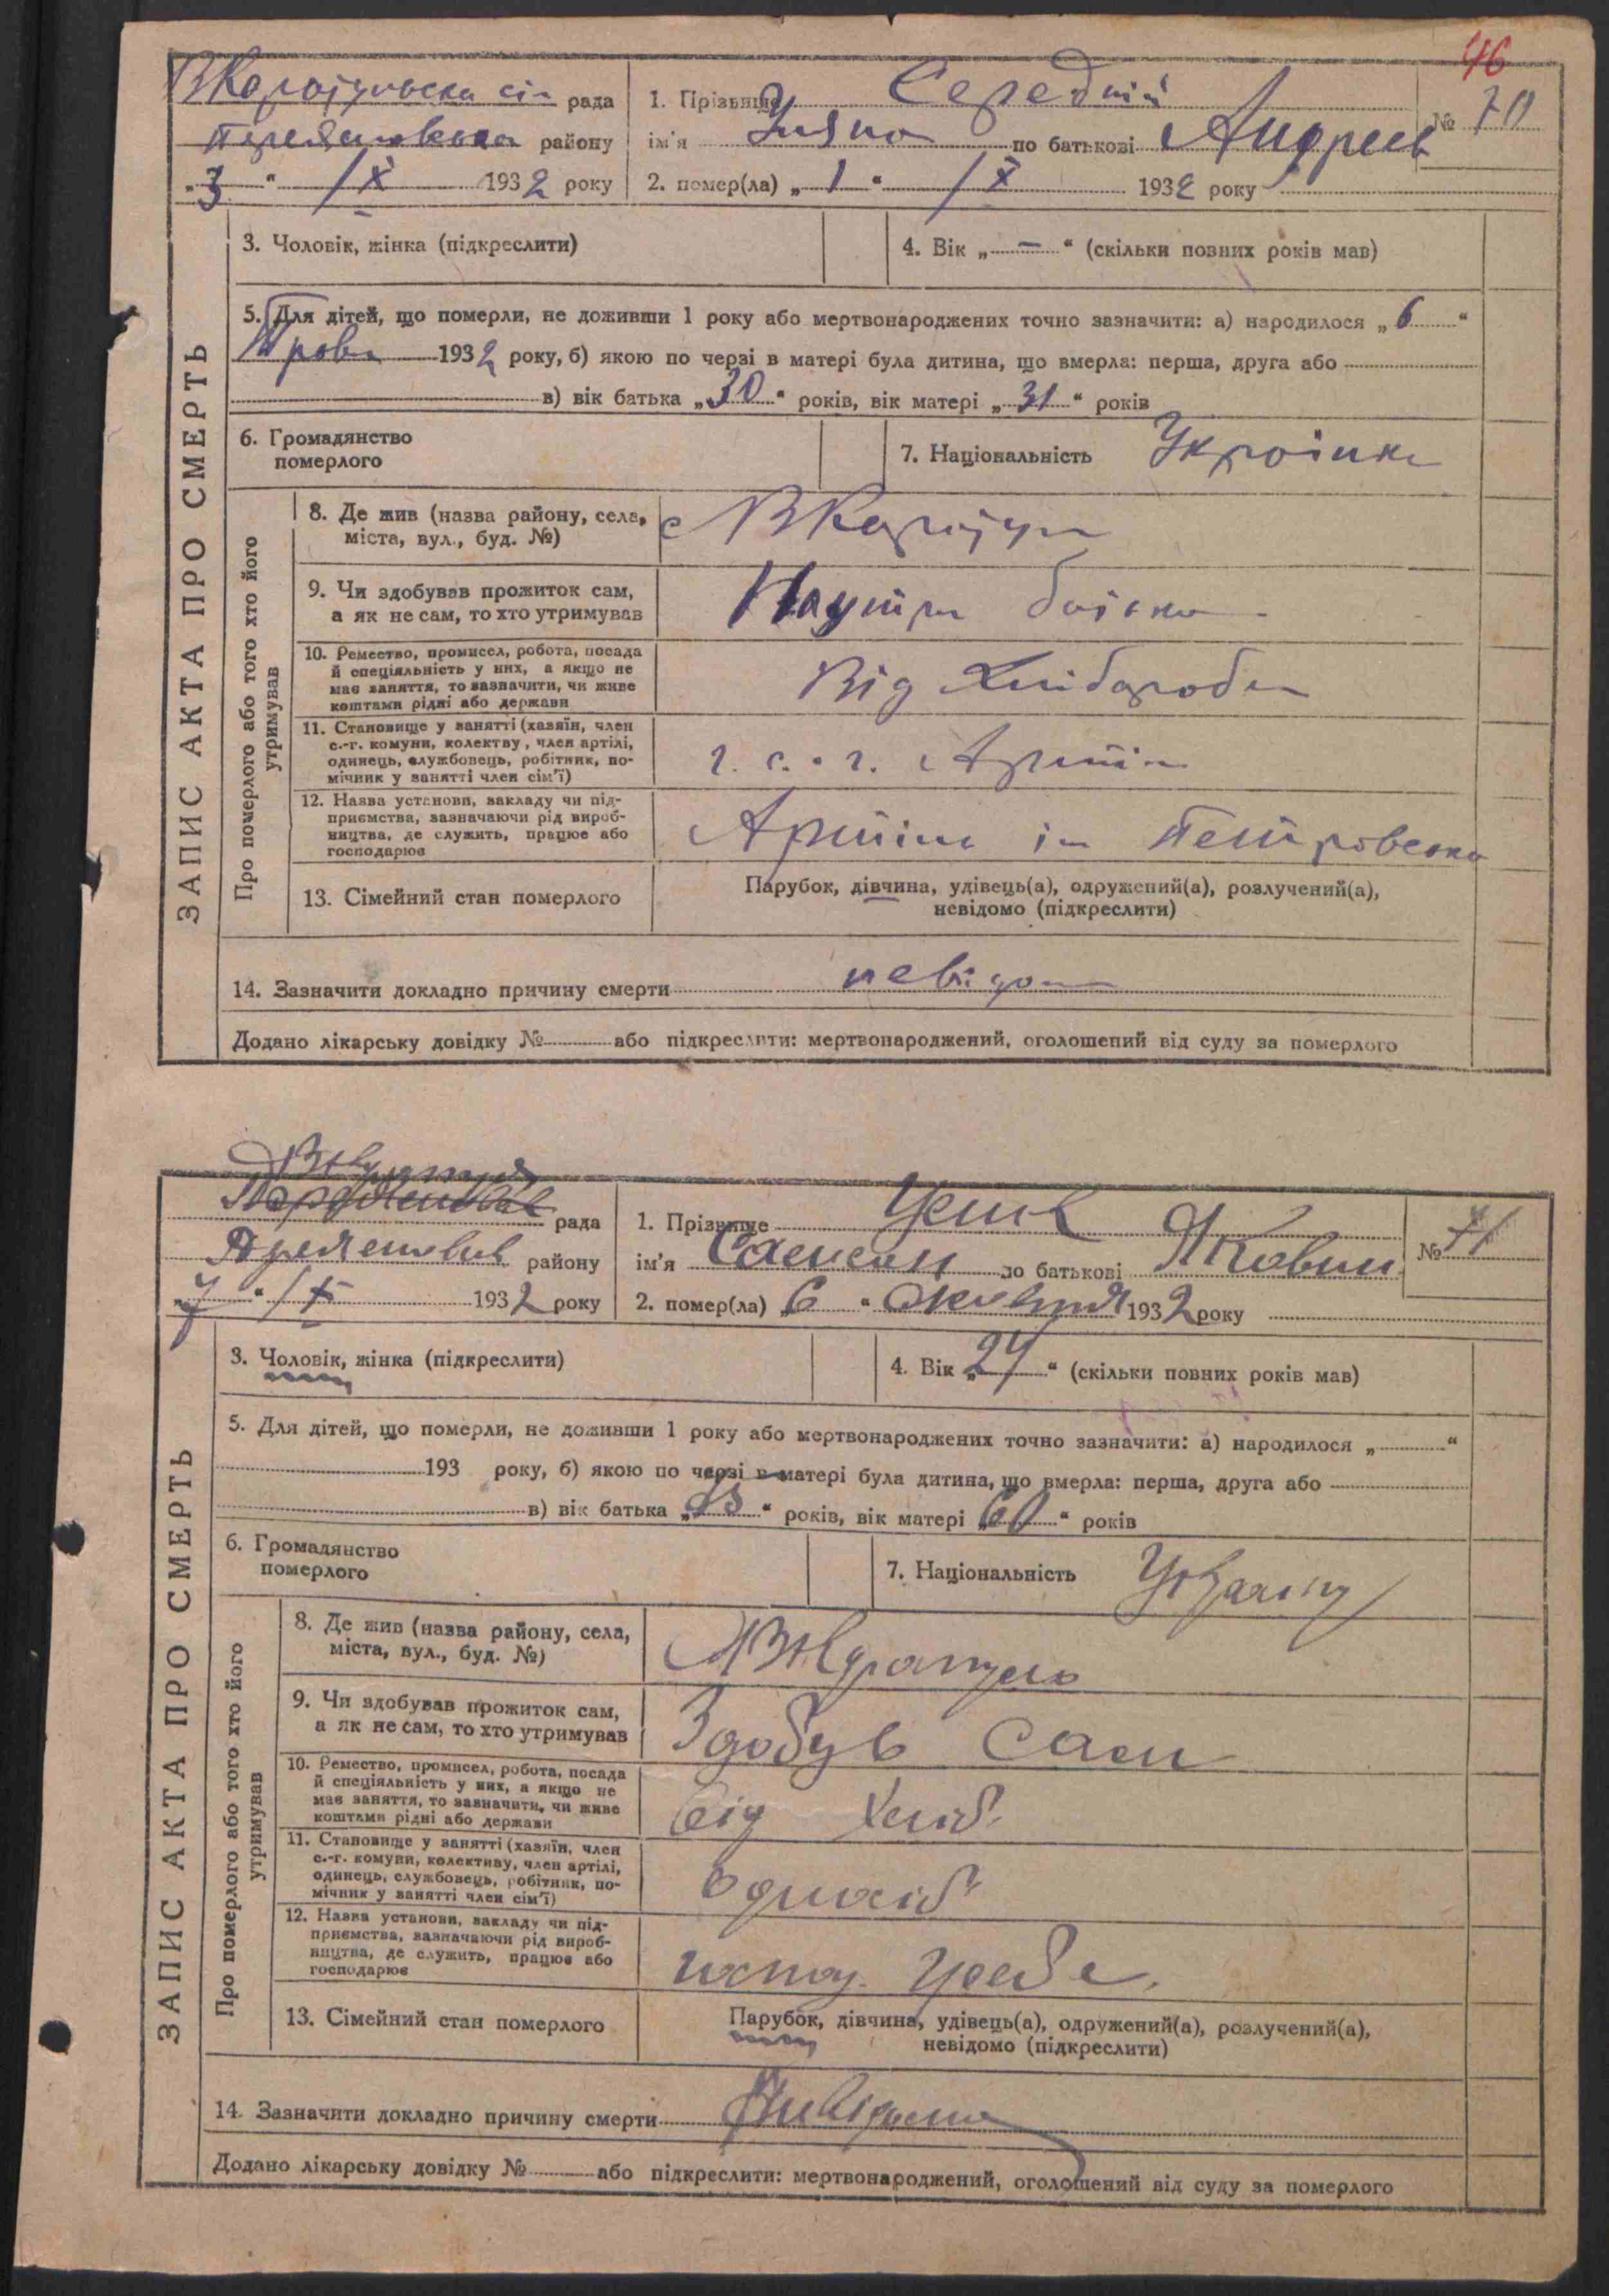 46
ВКаратульська сіл рада
Переяславська району
„3“ /X 1932 року
1. Прізвище Середній
№ 70
ім'я Уляна по батькові Андреев
2. помер(ла) „1“ /X 1932 року
ЗАПИС АКТА ПРО СМЕРТЬ
3. Чоловік, жінка (підкреслити)
4. Вік „—“ (скільки повних років мав)
5. Для дітей, що померли, не доживши 1 року або мертвонароджених точно зазначити: а) народилося „6“
1932 року, б) якою по черзі в матері була дитина, що вмерла: перша, друга або
в) вік батька „30“ років, вік матері „31“ років
6. Громадянство
померлого
7. Національність Українка
Про померлого або того хто його
утримував
8. Де жив (назва району, села,
міста, вул., буд. №)
с ВКаратул
9. Чи здобував прожиток сам,
а як не сам, то хто утримував
батька
10. Ремество, промисел, робота, посада
й спеціяльність у них, а якщо не
має заняття, то зазначити, чи живе
коштами рідні або держави
Від Хліборобс
11. Становище у занятті (хазяїн, член
с.-г. комуни, колективу, член артілі,
одинець, службовець, робітник, по-
мічник у занятті член сім'ї)
ч. с. г. Артіл
12. Назва установи, закладу чи під-
приємства, зазначаючи рід вироб-
ництва, де служить, працює або
господарює
Артіль ім Петровсько
13. Сімейний стан померлого
Парубок, дівчина, удівець(а), одружений(а), розлучений(а),
невідомо (підкреслити)
14. Зазначити докладно причину смерти невідом
Додано лікарську довідку № або підкреслити: мертвонароджений, оголошений від суду за померлого
рада
району
„7“ /X 1932 року
1. Прізвище
№ 71
ім'я Самсон по батькові Якович
2. помер(ла) „6“ Октября 1932 року
ЗАПИС АКТА ПРО СМЕРТЬ
3. Чоловік, жінка (підкреслити)
4. Вік „24“ (скільки повних років мав)
5. Для дітей, що померли, не доживши 1 року або мертвонароджених точно зазначити: а) народилося „“
193 року, б) якою по черзі в матері була дитина, що вмерла: перша, друга або
в) вік батька „“ років, вік матері „60“ років
6. Громадянство
померлого
7. Національність
Про померлого або того хто його
утримував
8. Де жив (назва району, села,
міста, вул., буд. №)
9. Чи здобував прожиток сам,
а як не сам, то хто утримував
Здобув сам
10. Ремество, промисел, робота, посада
й спеціяльність у них, а якщо не
має заняття, то зазначити, чи живе
коштами рідні або держави
від Хліб.
11. Становище у занятті (хазяїн, член
с.-г. комуни, колективу, член артілі,
одинець, службовець, робітник, по-
мічник у занятті член сім'ї)
12. Назва установи, закладу чи під-
приємства, зазначаючи рід вироб-
ництва, де служить, працює або
господарює
13. Сімейний стан померлого
Парубок, дівчина, удівець(а), одружений(а), розлучений(а),
невідомо (підкреслити)
14. Зазначити докладно причину смерти Нивідома
Додано лікарську довідку № або підкреслити: мертвонароджений, оголошений від суду за померлого